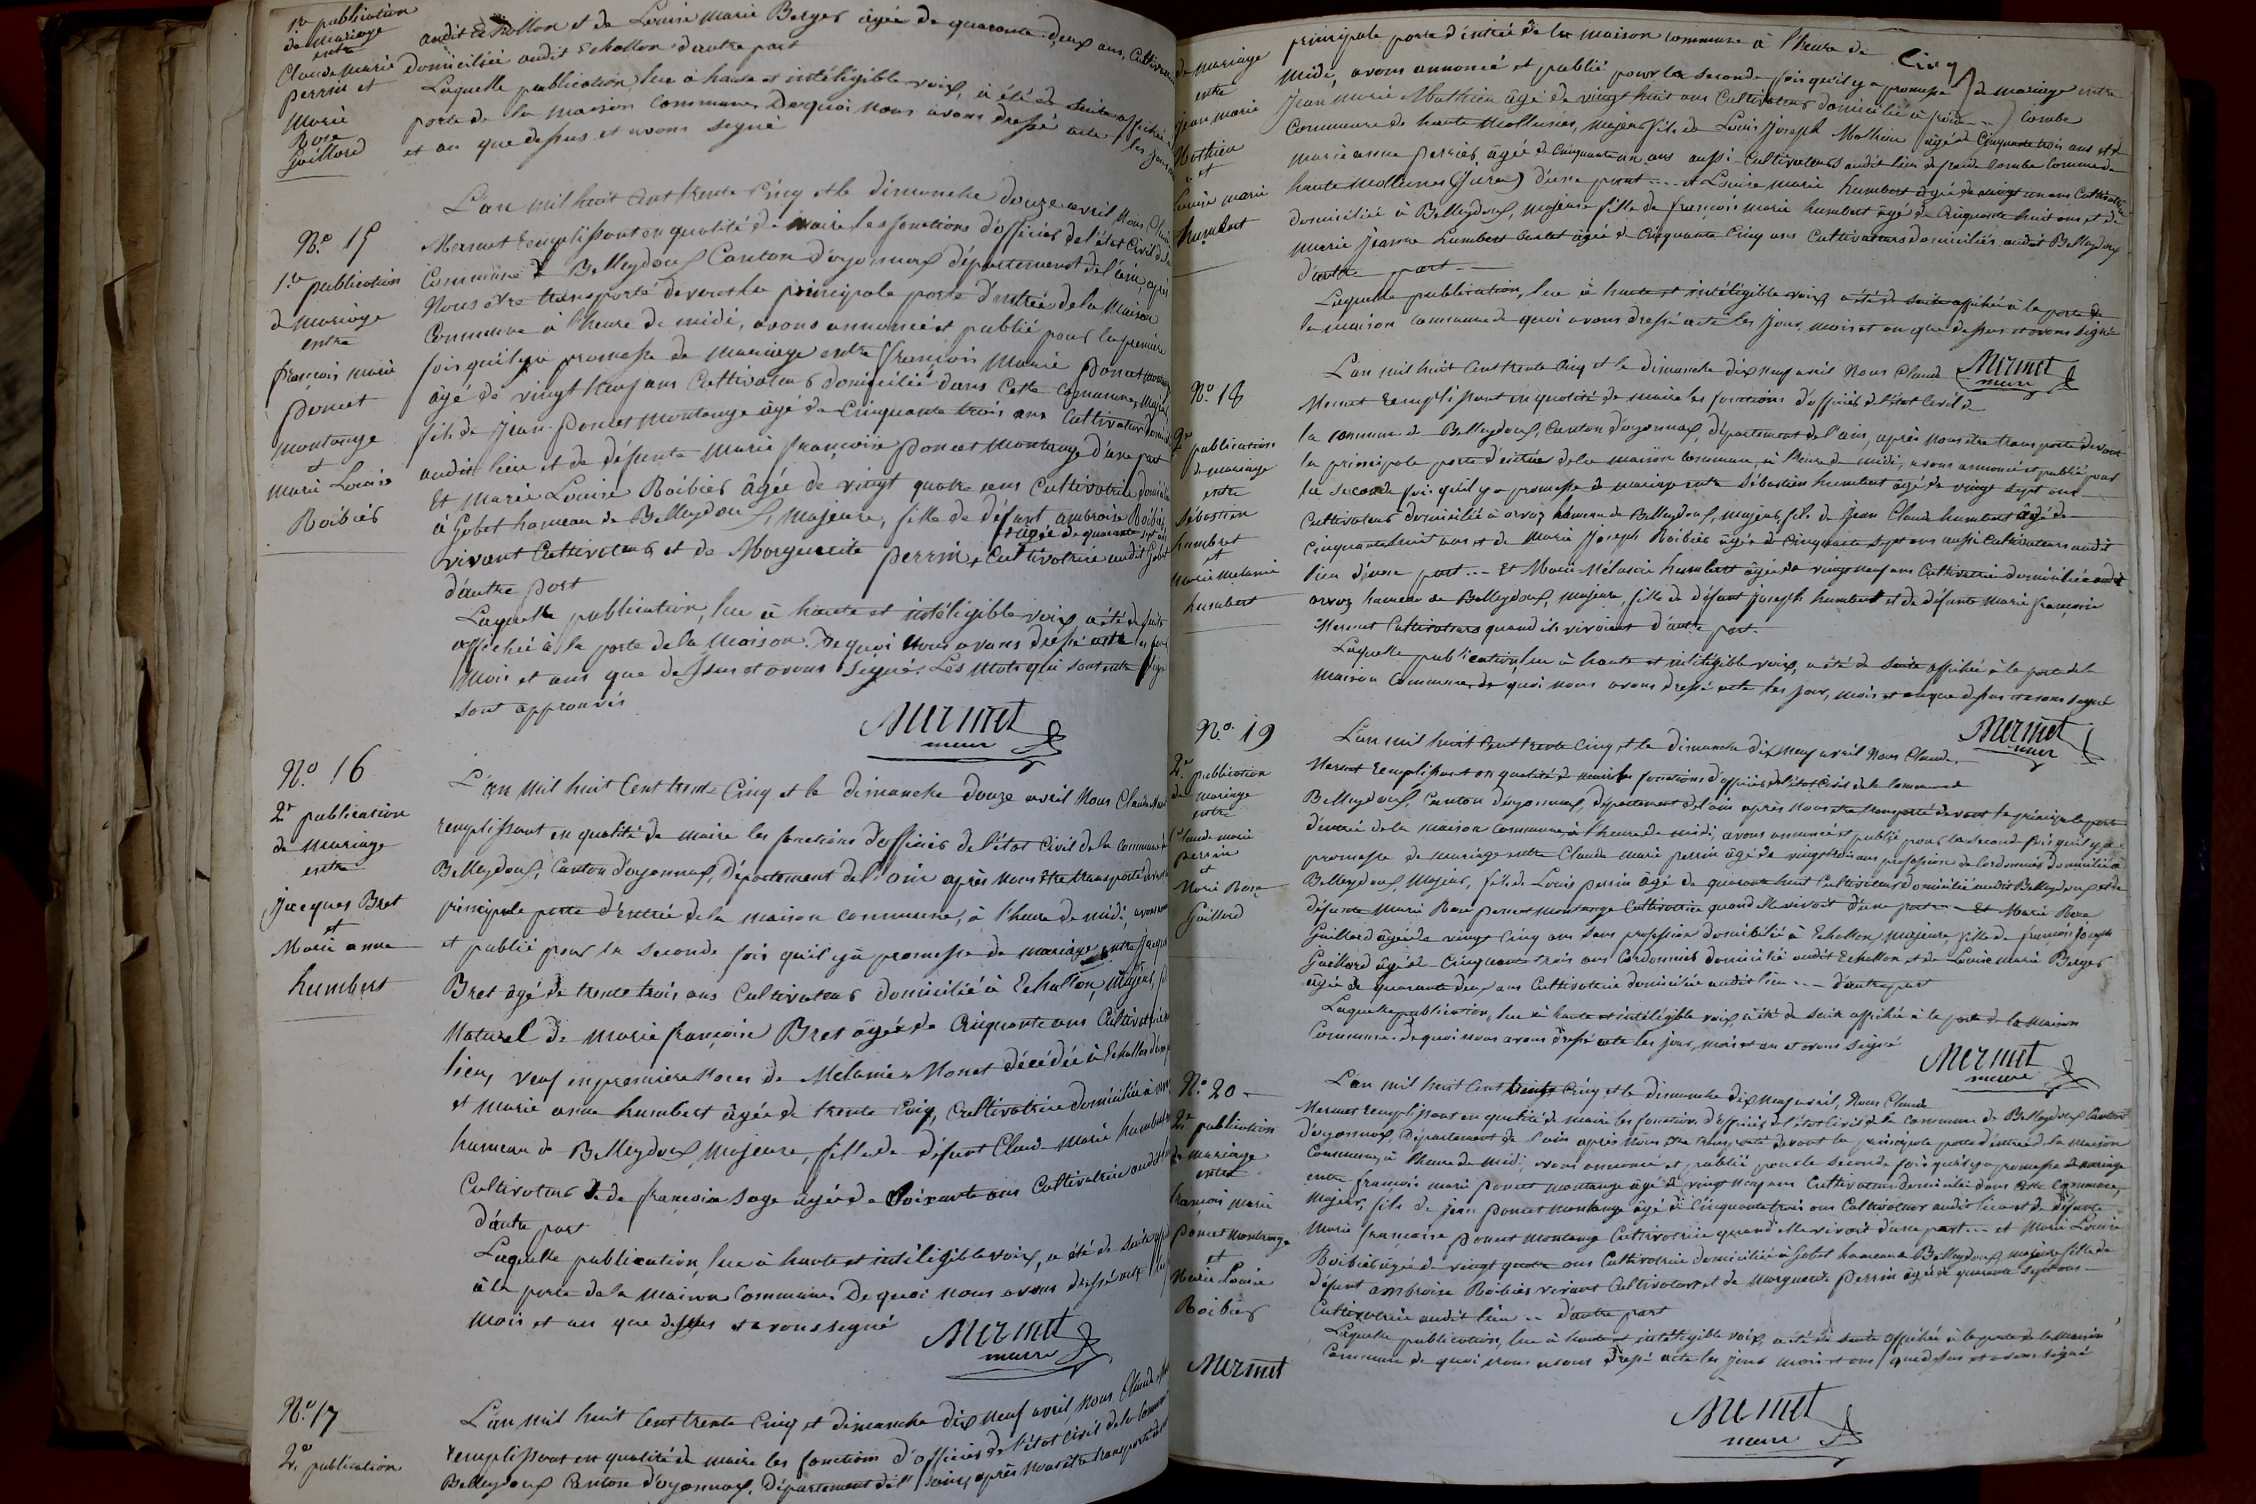 1re publication
de mariage
entre
Claude Marie
perrin et
Marie
Rose
Guillard
audit Echallon et de Louise Marie Berger âgée de quarante deux ans, Cultivatrice
domiciliée audit Echallon d'autre part
Laquelle publication, lue à haute et intéligible voix, a été de suite affichée à
porte de la maison commune. De quoi nous avons dressé acte les jour
et an que dessus et avons signé
N.o 15
1re publication
de mariage
entre
françois marie
poncet
montange
et
Marie Louise
Roibier
L'an mil huit cent trente Cinq et le dimanche douze avril Nous Claude
Mermet remplissant en qualité de maire les fonctions d'officier de l'état Civil de la
Commune de Belleydoux Canton d'oyonnax département de l'ain, après
Nous être transporté devant la principale porte d'entrée de la Maison
Commune à l'heure de midi, avons annoncé et publié pour la première
fois qu'il y a promesse de mariage entre françois Marie poncet montange
âgé de vingt neuf ans Cultivateur domicilié dans Cette Commune, Majeur
fils de Jean poncet montange âgé de Cinquante trois ans Cultivateur
audit lieu et de défunte Marie françoise poncet Montange d'une part
Et Marie Louise Roibier âgée de vingt quatre ans Cultivatrice
à Gobet hameau de Belleydoux, Majeure, fille de défunt ambroise Roibier
âgée de quarante sept ans
vivant Cultivateur et de Marguerite perrin Cultivatrice audit Gobet
d'autre part
Laquelle publication, lue à haute et intéligible voix a été de suite
affichée à la porte de la Maison. De quoi Nous avons dressé acte les jour
mois et ans que dessus et avons signé. Les Mots qui sont entre ligne
sont approuvés
Mermet
maire
N.o 16
2e publication
de mariage
entre
Jacques Bret
et
Marie anne
humbert
L'an mil huit Cent trente Cinq et le dimanche douze avril Nous Claude
remplissant en qualité de maire les fonctions d'officier de l'état Civil de la commune de
Belleydoux, Canton d'oyonnax, Département de l'ain après nous être transporté devant
principale porte d'entrée de la maison commune, à l'heure de midi, avons
et publié pour la seconde fois qu'il y a promesse de mariage entre Jacques
Bret âgé de trente trois ans Cultivateur domicilié à Echallon, Majeur,
Naturel de marie françoise Bret âgée de Cinquante ans Cultivatrice
lieu, veuf en premiere Noces de Mélanie Monet décédée à Echallon d'une
et marie anne humbert âgée de trente Cinq, Cultivatrice domiciliée à
hameau de Belleydoux, Majeure, fille de défunt Claude Marie humbert
Cultivateur de françoise Sage âgée de Soixante ans Cultivatrice audit
d'autre part
Laquelle publication, lue à haute et intéligible voix, a été de suite
à la porte de la Maison Commune. De quoi nous avons dressé acte les
mois et an que dessus et avons signé
Mermet
maire
N.o 17
2e publication
L'an mil huit Cent trente Cinq et dimanche dix neuf avril, Nous Claude
remplissant en qualité de maire les fonctions d'officier de l'état Civil de la Commune
Belleydoux Canton d'oyonnax, Département de l'ain, après nous être transporté
de mariage
entre
jean marie
Mathieu
et
Louise marie
humbert
principale porte d'entrée de la maison commune à l'heure de
midi, avons annoncé et publié pour la seconde fois qu'il y a promesse de mariage entre
Jean Marie Mathieu âgé de vingt huit ans Cultivateur domicilié à combe
Commune de haute Mollunes, Majeur fils de Louis Joseph Mathieu âgé de Cinquante trois ans et de
marie anne perrier âgée de Cinquante un ans aussi Cultivateurs audit lieu de froide Combe Commune de
haute Mollunes (Jura) d'une part .... et Louise Marie humbert âgée de vingt un ans Cultivatrice
domiciliée à Belleydoux, Majeure fille de françois marie humbert âgé de Cinquante huit ans et de
Marie Jeanne humbert âgée de Cinquante Cinq ans Cultivateurs domiciliés audit Belleydoux
d'autre part
Laquelle publication, lue à haute et intéligible voix a été de suite affichée à la porte de
la maison commune de quoi avons dressé acte les jour mois et an que dessus et avons signé
Mermet
maire
N.o 18
2e
publication
de mariage
entre
Sébastien
humbert
et
marie mélanie
humbert
L'an mil huit Cent trente Cinq et le dimanche dix neuf avril Nous Claude
Mermet remplissant en qualité de maire les fonctions d'officier de l'état Civil de
la Commune de Belleydoux, Canton d'oyonnax, département de l'ain, après nous être transporté devant
la principale porte d'entrée de la maison Commune, à l'heure de midi, avons annoncé et publié pour
la seconde fois qu'il y a promesse de mariage entre Sébastien humbert âgé de vingt sept ans
Cultivateur domicilié à orvoz hameau de Belleydoux, Majeur, fils de Jean Claude humbert âgé de
Cinquante huit ans et de Marie Joseph Roibier âgée de Cinquante sept ans aussi Cultivateurs audit
lieu d'une part ... Et Marie Mélanie humbert âgée de vingt neuf ans Cultivatrice domiciliée audit
orvoz hameau de Belleydoux, majeure, fille de défunt Joseph humbert et de défunte Marie françoise
Mermet Cultivateurs quand ils vivoient d'autre part.
Laquelle publication, lue à haute et intéligible voix, a été de suite affichée à la porte de la
maison Commune, de quoi nous avons dressé acte les jour, mois et an que dessus et avons signé
Mermet
maire
N.o 19
2e
publication
de mariage
entre
Claude marie
perrin
et
Marie Rose
Guillard
L'an mil huit Cent trente Cinq et le dimanche dix neuf avril Nous Claude
Mermet remplissant en qualité de maire les fonctions d'officier de l'état Civil de la Commune de
Belleydoux, Canton d'oyonnax, département de l'ain après nous être transporté devant la principale porte
d'entrée de la maison Commune, à l'heure de midi, avons annoncé et publié pour la seconde fois qu'il y a
promesse de mariage entre Claude Marie perrin âgé de vingt trois ans profession de Cordonnier domicilié à
Belleydoux, Majeur, fils de Louis perrin âgé de quarante huit Cultivateur domicilié audit Belleydoux et de
défunte Marie Rose poncet Montange Cultivatrice quand elle vivoit d'une part ... Et Marie Rose
Guillard âgée de vingt Cinq ans Sans profession domiciliée à Echallon, Majeure, fille de françois Joseph
Guillard âgé de Cinquante trois ans Cordonnier domicilié audit Echallon et de Louise Marie Berger
âgée de quarante deux ans Cultivatrice domiciliée audit lieu ... d'autre part
Laquelle publication, lue à haute et intéligible voix, a été de suite affichée à la porte de la Maison
Commune. De quoi nous avons dressé acte les jour, mois et an et avons signé
Mermet
maire
N.o 20
2e
publication
de mariage
entre
françois marie
poncet montange
et
Marie Louise
Roibier
Mermet
L'an mil huit Cent trente Cinq et le dimanche dix neuf avril, Nous Claude
Mermet remplissant en qualité de maire les fonctions d'officier de l'état Civil de la Commune de Belleydoux Canton
d'oyonnax, Département de l'ain après nous être transporté devant la principale porte d'entrée de la Maison
Commune, à l'heure de midi, avons annoncé et publié pour la seconde fois qu'il y a promesse de mariage
entre françois marie poncet montange âgé de vingt neuf ans Cultivateur domicilié dans Cette Commune,
Majeur, fils de jean poncet montange âgé de Cinquante trois ans Cultivateur audit lieu et de défunte
Marie françoise poncet montange Cultivatrice quand elle vivoit d'une part ... et Marie Louise
Roibier âgée de vingt quatre ans Cultivatrice domiciliée à Gobet hameau de Belleydoux, majeure fille de
défunt ambroise Roibier vivant Cultivateur et de Marguerite perrin âgée de quarante sept ans
Cultivatrice audit lieu ... d'autre part
Laquelle publication, lue à haute et intéligible voix, a été de suite affichée à la porte de la Maison
Commune de quoi nous avons dressé acte les jour mois et an que dessus et avons signé
Mermet
maire